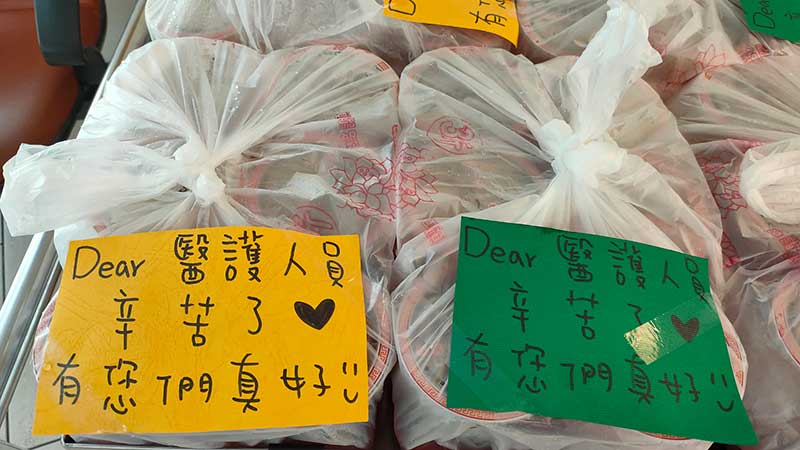 有
Dear
Dear 醫護人員
辛苦了♥
有您們真好:)
Dear 醫護人員
辛苦了♥
有您們真好:)